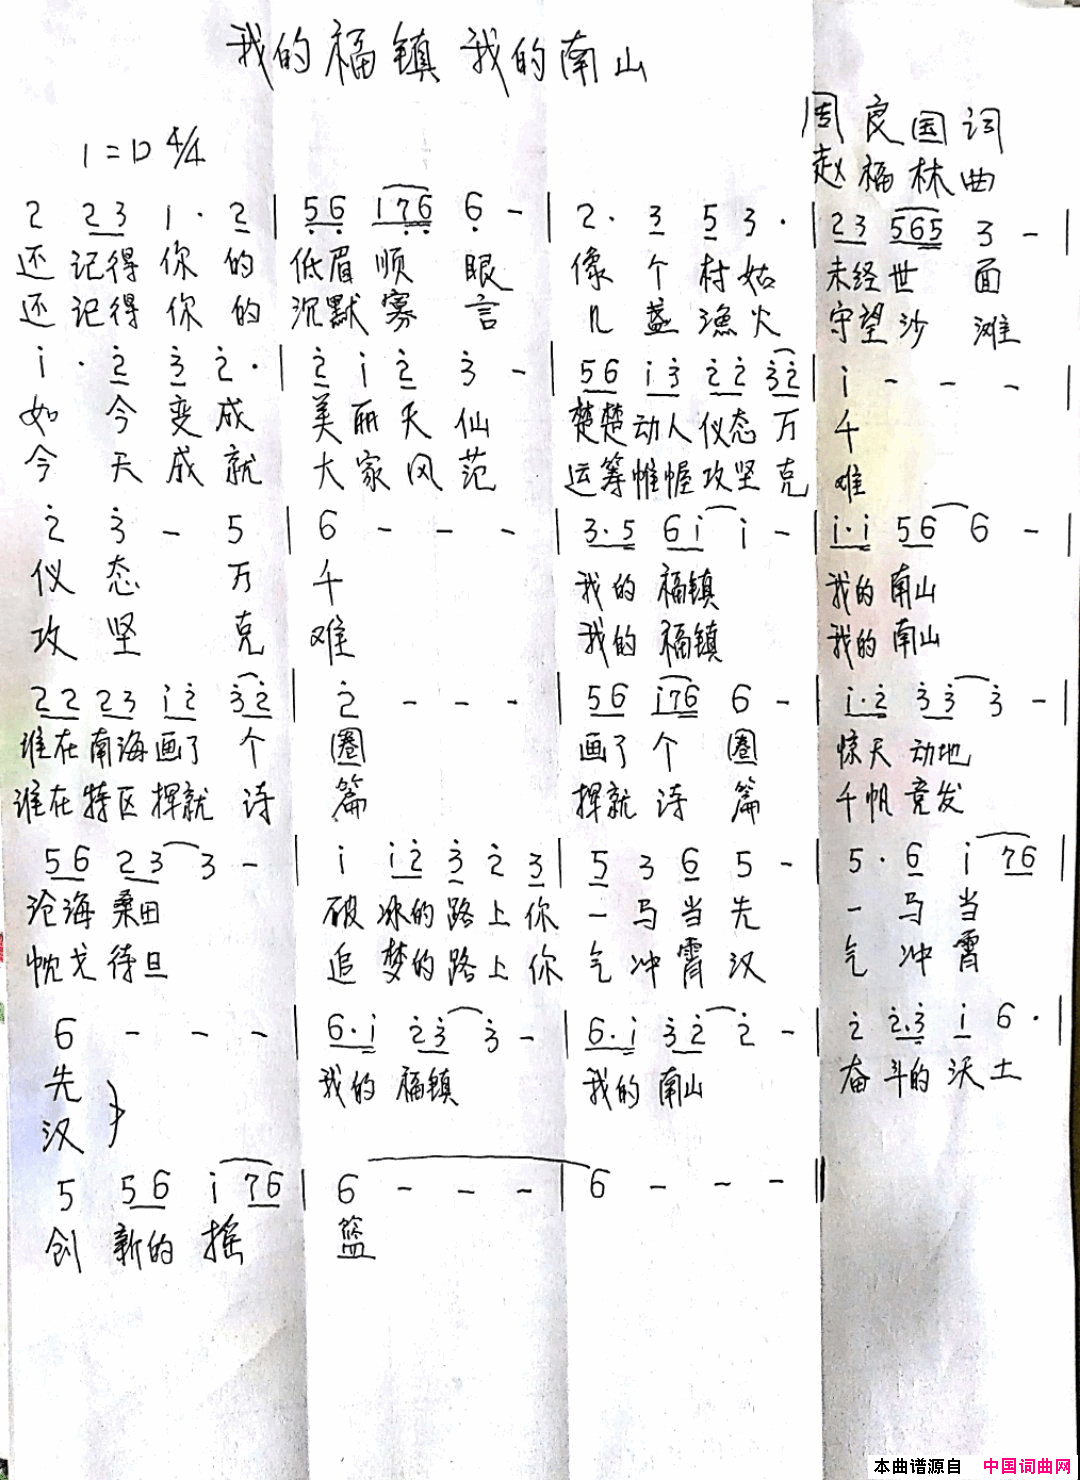 我的福镇 我的南山
周良国词
1=D 4/4
赵福林曲
2 23 1· 2 | 56 176 6 - | 2· 3 5 3· | 23 565 3 - |
还记得你的低眉顺眼像个村姑未经世面
还记得你的沉默寡言几盏渔火守望沙滩
i· 2 3 2· | 2 i 2 3 - | 56 i3 22 32 | i - - - |
如今变成美丽天仙楚楚动人仪态万千
今天成就大家风范运筹帷幄攻坚克难
2 3 - 5 | 6 - - - | 3·5 6i i - | i·i 56 6 - |
仪态万千我的福镇我的南山
攻坚克难我的福镇我的南山
22 23 i2 32 | 2 - - - | 56 i76 6 - | i·2 33 3 - |
谁在南海画了个圈画了个圈惊天动地
谁在特区挥就诗篇挥就诗篇千帆竞发
56 23 3 - | i i2 3 2 3 | 5 3 6 5 - | 5· 6 i 76 |
沧海桑田破冰的路上你一马当先一马当
枕戈待旦追梦的路上你气冲霄汉气冲霄
6 - - - | 6·i 23 3 - | 6·i 32 2 - | 2 2·3 i 6· |
先我的福镇我的南山奋斗的沃土
汉
5 56 i 76 | 6 - - - | 6 - - - ‖
创新的摇篮
本曲谱源自 中国词曲网